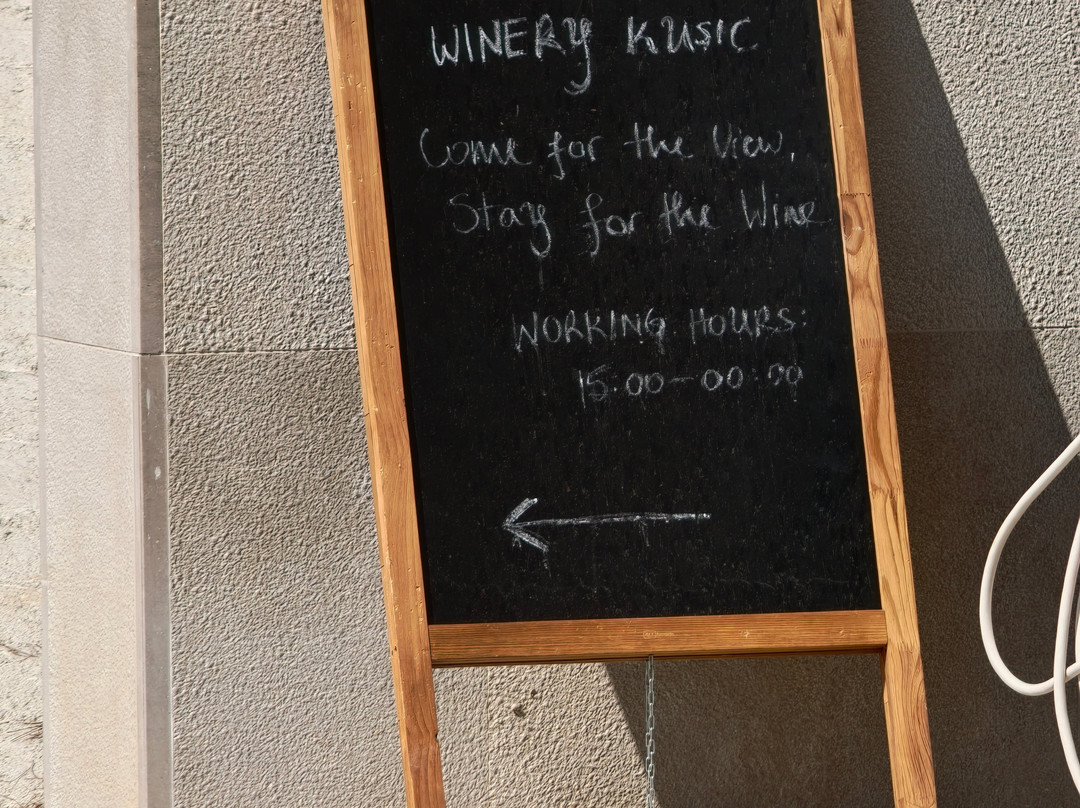 WINERY KUSIC
Come for the View,
Stay for the Wine
WORKING HOURS:
15:00-00:00